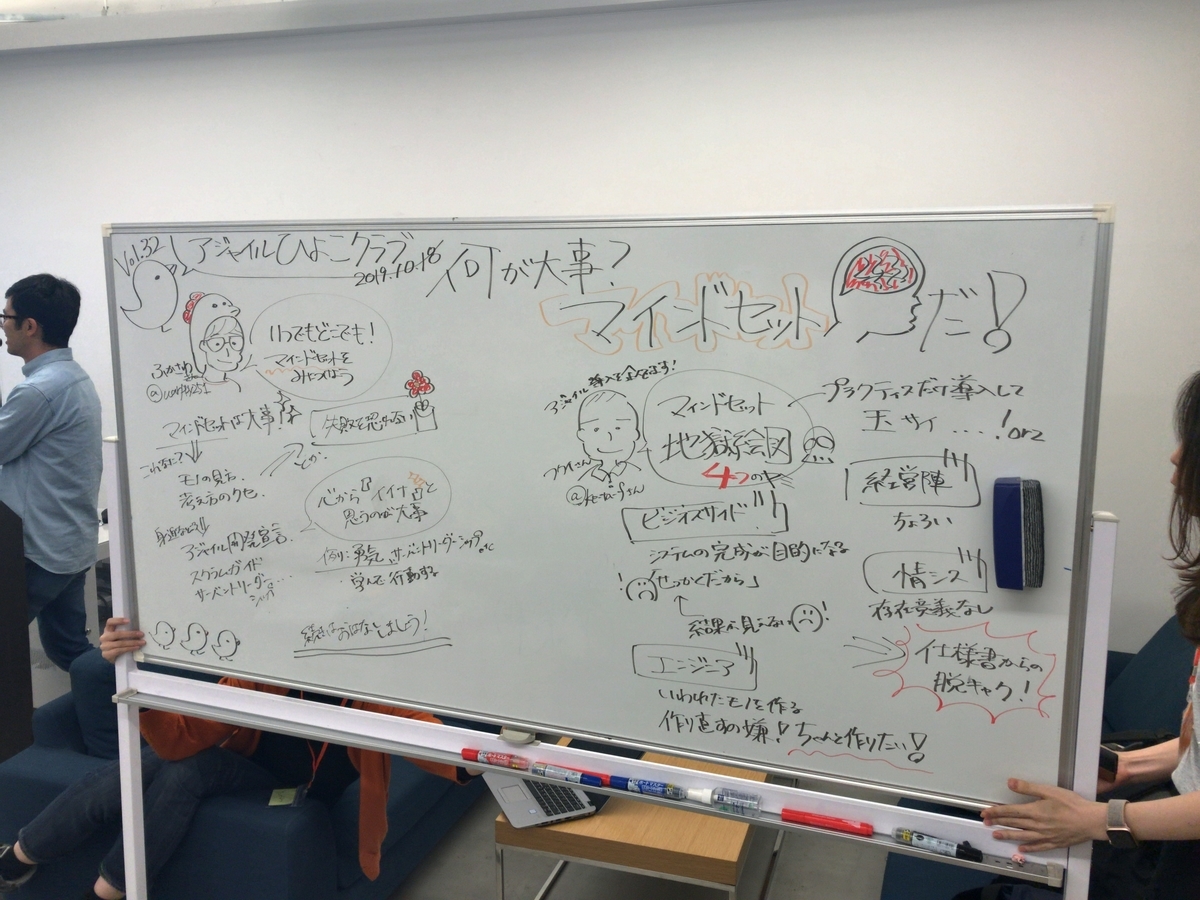 Vol.32
アジャイルひよこクラブ
2019.10.18
何が大事?
マインドセット
だ!
いつでもどこでも!
マインドセットを
みつけよう
ふかさわ
マインドセットは大事
失敗を認めない
モノの見方、
考え方のクセ、
とか、
心から『イイナ』と
思うのが大事
アジャイル開発宣言、
スクラムガイド
サーバントリーダー…
シップ
例に勇気、サーバントリーダーシップ etc
学んで行動する
続きはおはなしましょう!
アジャイル
マインドセット
地獄絵図
4つの
プラクティスだけ導入して
玉サイ....!orz
ビジネスサイド
システムの完成が目的になる
「せっかくだから」
結果が見えない
!
エンジニア
いわれたモノを作る
作り直すの嫌!ちゃんと作りたい!
経営陣
ちょろい
情シス
存在意義なし
仕様書からの
脱キャク!